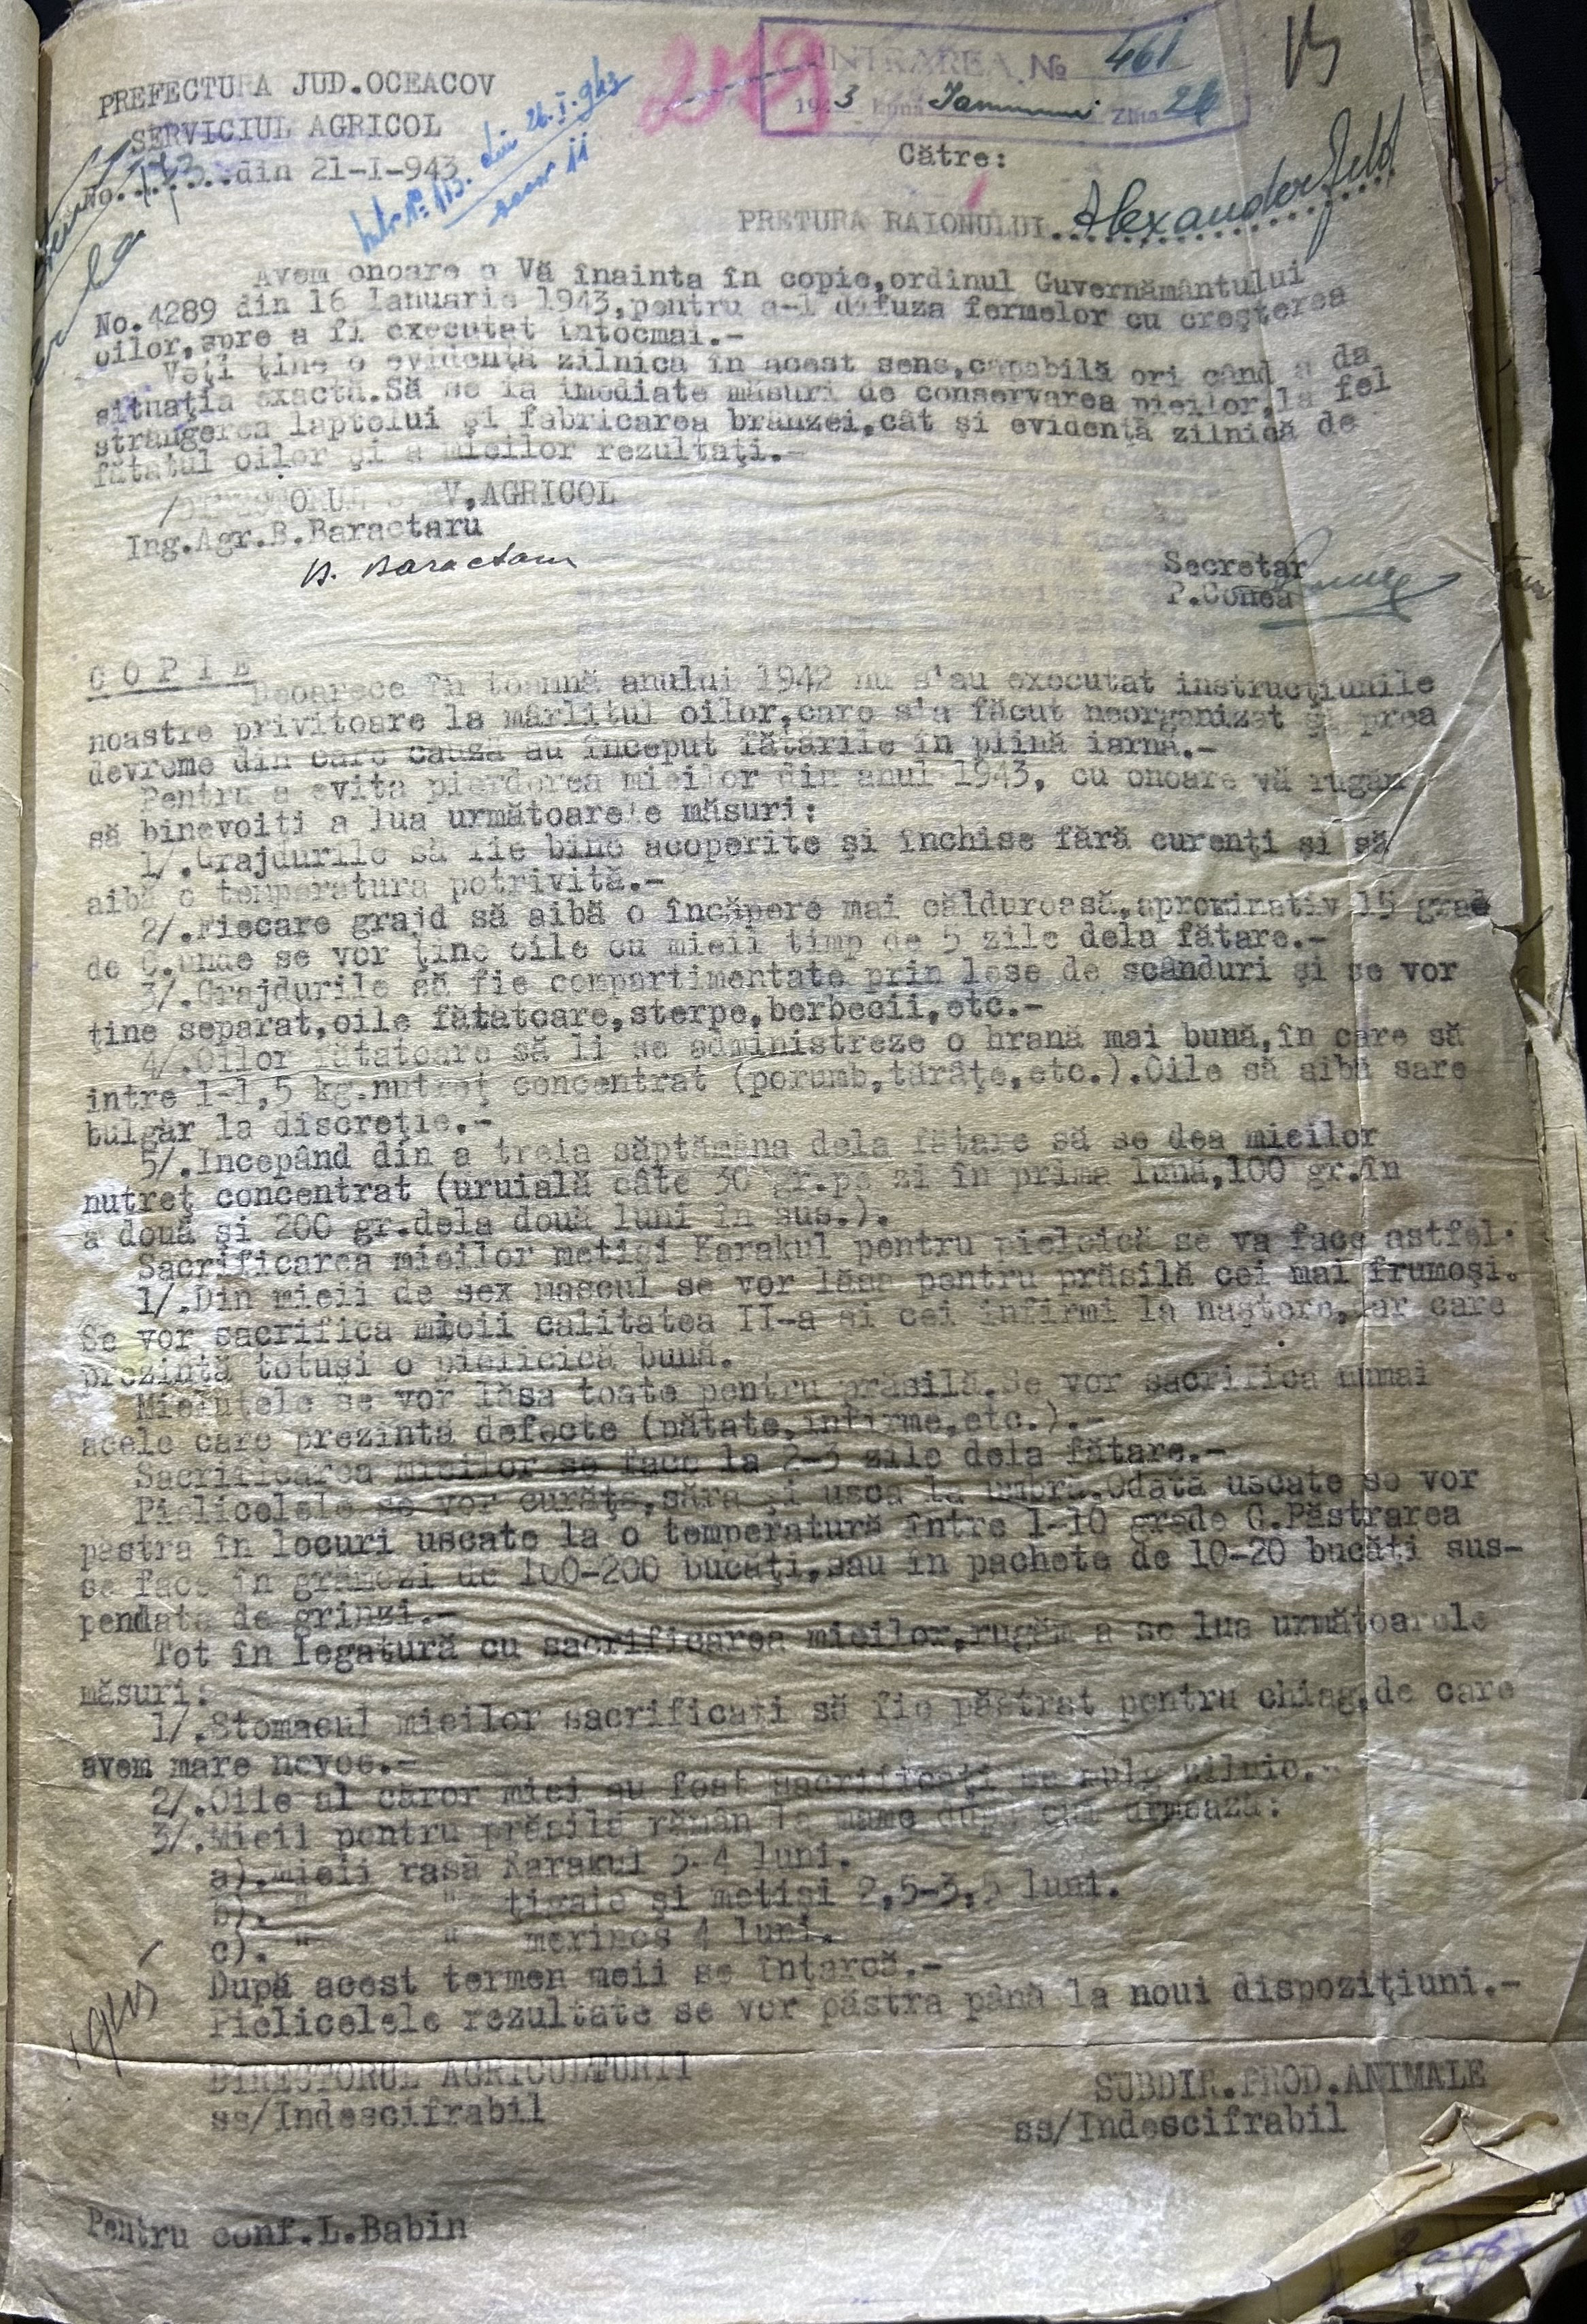 PREFECTURA JUD.OCEACOV
SERVICIUL AGRICOL
No. din 21-I-943
din 26.I.943
219
INTRAREA No 461
1943 luna Ianuarie Ziua 26
Către:
PRETURA RAIONULUI. Alexanderfeld
Avem onoare a Vă înainta în copie,ordinul Guvernământului
No.4289 din 16 Ianuarie 1943,pentru a-l difuza fermelor cu creşterea
oilor,spre a fi executat întocmai.-
Veţi ţine o evidenţă zilnică în acest sens,capabilă ori când a da
situaţia exactă.Să se ia imediate măsuri de conservarea pieilor,la fel
strângerea laptelui şi fabricarea brânzei,cât şi evidenţă zilnică de
fătatul oilor şi a mieilor rezultaţi.-
V,AGRICOL
Ing.Agr.B.Baractaru
B. Baractaru
Secretar
P.Conea
C O P I E
Deoarece în toamnă anului 1942 nu s'au executat instrucţiunile
noastre privitoare la mârlitul oilor,care s'a făcut neorganizat şi prea
devreme din care cauză au început fătările în plină iarnă.-
Pentru a evita pierderea mieilor din anul 1943, cu onoare vă rugăm
să binevoiţi a lua următoarele măsuri:
1/.Grajdurile să fie bine acoperite şi închise fără curenţi şi să
aibă o temperatura potrivită.-
2/.Fiecare grajd să aibă o încăpere mai călduroasă,aproximativ 15 grad
de C.unde se vor ţine oile cu mieii timp de 5 zile dela fătare.-
3/.Grajdurile să fie compartimentate prin lese de scânduri şi se vor
ţine separat,oile fătatoare,sterpe,berbecii,etc.-
4/.Oilor fătatoare să li se administreze o hrană mai bună,în care să
intre 1-1,5 kg.nutreţ concentrat (porumb,tărâţe,etc.).Oile să aibă sare
bulgăr la discreţie.-
5/.Incepând din a treia săptămâna dela fătare să se dea mieilor
nutreţ concentrat (uruială câte 50 gr.pe zi în prima lună,100 gr.în
a două şi 200 gr.dela două luni în sus.).
Sacrificarea mieilor metişi Karakul pentru pielcică se va face astfel:
1/.Din mieii de sex mascul se vor lăsa pentru prăsilă cei mai frumoşi.
Se vor sacrifica mieii calitatea II-a şi cei infirmi la naştere,dar care
prezintă totuşi o pielicică bună.
Mieluţele se vor lăsa toate pentru prăsilă.Se vor sacrifica numai
acele care prezintă defecte (pătate,infirme,etc.).-
Sacrificarea mieilor se face la 2-3 zile dela fătare.-
Pielicelele se vor curăţa,săra şi usca la umbră.Odată uscate se vor
păstra în locuri uscate la o temperatură între 1-10 grade C.Păstrarea
se face în grămezi de 100-200 bucăţi,sau în pachete de 10-20 bucăţi sus-
pendate de grinzi.-
Tot în legatură cu sacrificarea mieilor,rugăm a se lua următoarele
măsuri:
1/.Stomacul mieilor sacrificaţi să fie păstrat pentru chiag,de care
avem mare nevoe.-
2/.Oile al căror miei au fost sacrificaţi se mulg zilnic.-
3/.Mieii pentru prăsilă rămân la mame după cum urmează:
a).mieii rasă Karakul 3-4 luni.
b). " " ţigaie şi metişi 2,5-3,5 luni.
c). " " merinos 4 luni.
După acest termen meii se înţarcă.-
Pielicelele rezultate se vor păstra până la noui dispoziţiuni.-
DIRECTORUL AGRICULTURII
ss/Indescifrabil
SUBDIR.PROD.ANIMALE
ss/Indescifrabil
Pentru conf.L.Babin